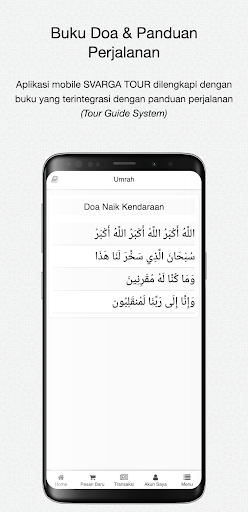 Buku Doa & Panduan
Perjalanan
Aplikasi mobile SVARGA TOUR dilengkapi dengan
buku yang terintegrasi dengan panduan perjalanan
(Tour Guide System)
Umrah
Doa Naik Kendaraan
اللهُ أَكْبَرُ اللهُ أَكْبَرُ اللهُ أَكْبَرُ
سُبْحَانَ الَّذِي سَخَّرَ لَنَا هَذَا
وَمَا كُنَّا لَهُ مُقْرِنِينَ
وَإِنَّا إِلَى رَبِّنَا لَمُنْقَلِبُون
Home Pesan Baru Transaksi Akun Saya Menu